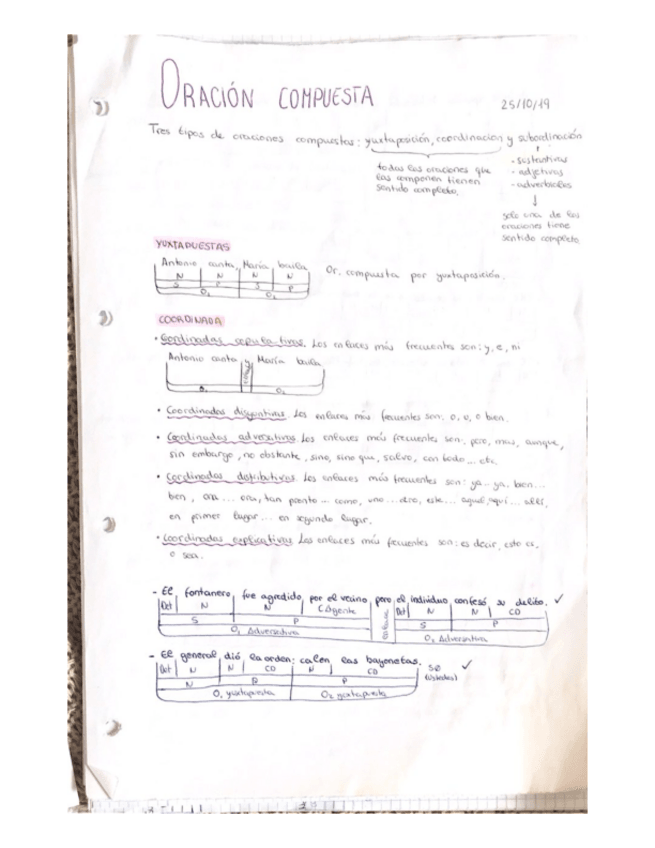 ORACIÓN COMPUESTA
25/10/19
Tres tipos de oraciones compuestas: yuxtaposición, coordinación y subordinación
todas las oraciones que
las componen tienen
sentido completo.
- sustantivas
- adjetivas
- adverbiales
solo una de las
oraciones tiene
sentido completo
YUXTAPUESTAS
Antonio canta, María baila
N N N N
S P S P
O₁ O₂
Or. compuesta por yuxtaposición.
COORDINADA
• Coordinadas copulativas. Los enlaces más frecuentes son: y, e, ni
Antonio canta y María baila
enlace
O₁ O₂
• Coordinadas disyuntivas. Los enlaces más frecuentes son: o, u, o bien.
• Coordinadas adversativas. Los enlaces más frecuentes son: pero, mas, aunque,
sin embargo, no obstante, sino, sino que, salvo, con todo... etc.
• Coordinadas distributivas. Los enlaces más frecuentes son: ya... ya, bien...
bien, ora... ora, tan pronto... como, uno... otro, este... aquel, aquí... allí,
en primer lugar... en segundo lugar.
• Coordinadas explicativas Los enlaces más frecuentes son: es decir, esto es,
o sea.
- El fontanero fue agredido por el vecino pero el individuo confesó su delito. ✓
Det N N CAgente enlace Det N N CD
S P S P
O₁ Adversativa O₂ Adversativa
- El general dió la orden: calen las bayonetas. ✓
Det N N CD N CD
SØ
(ustedes)
N P P
O₁ yuxtapuesta O₂ yuxtapuesta